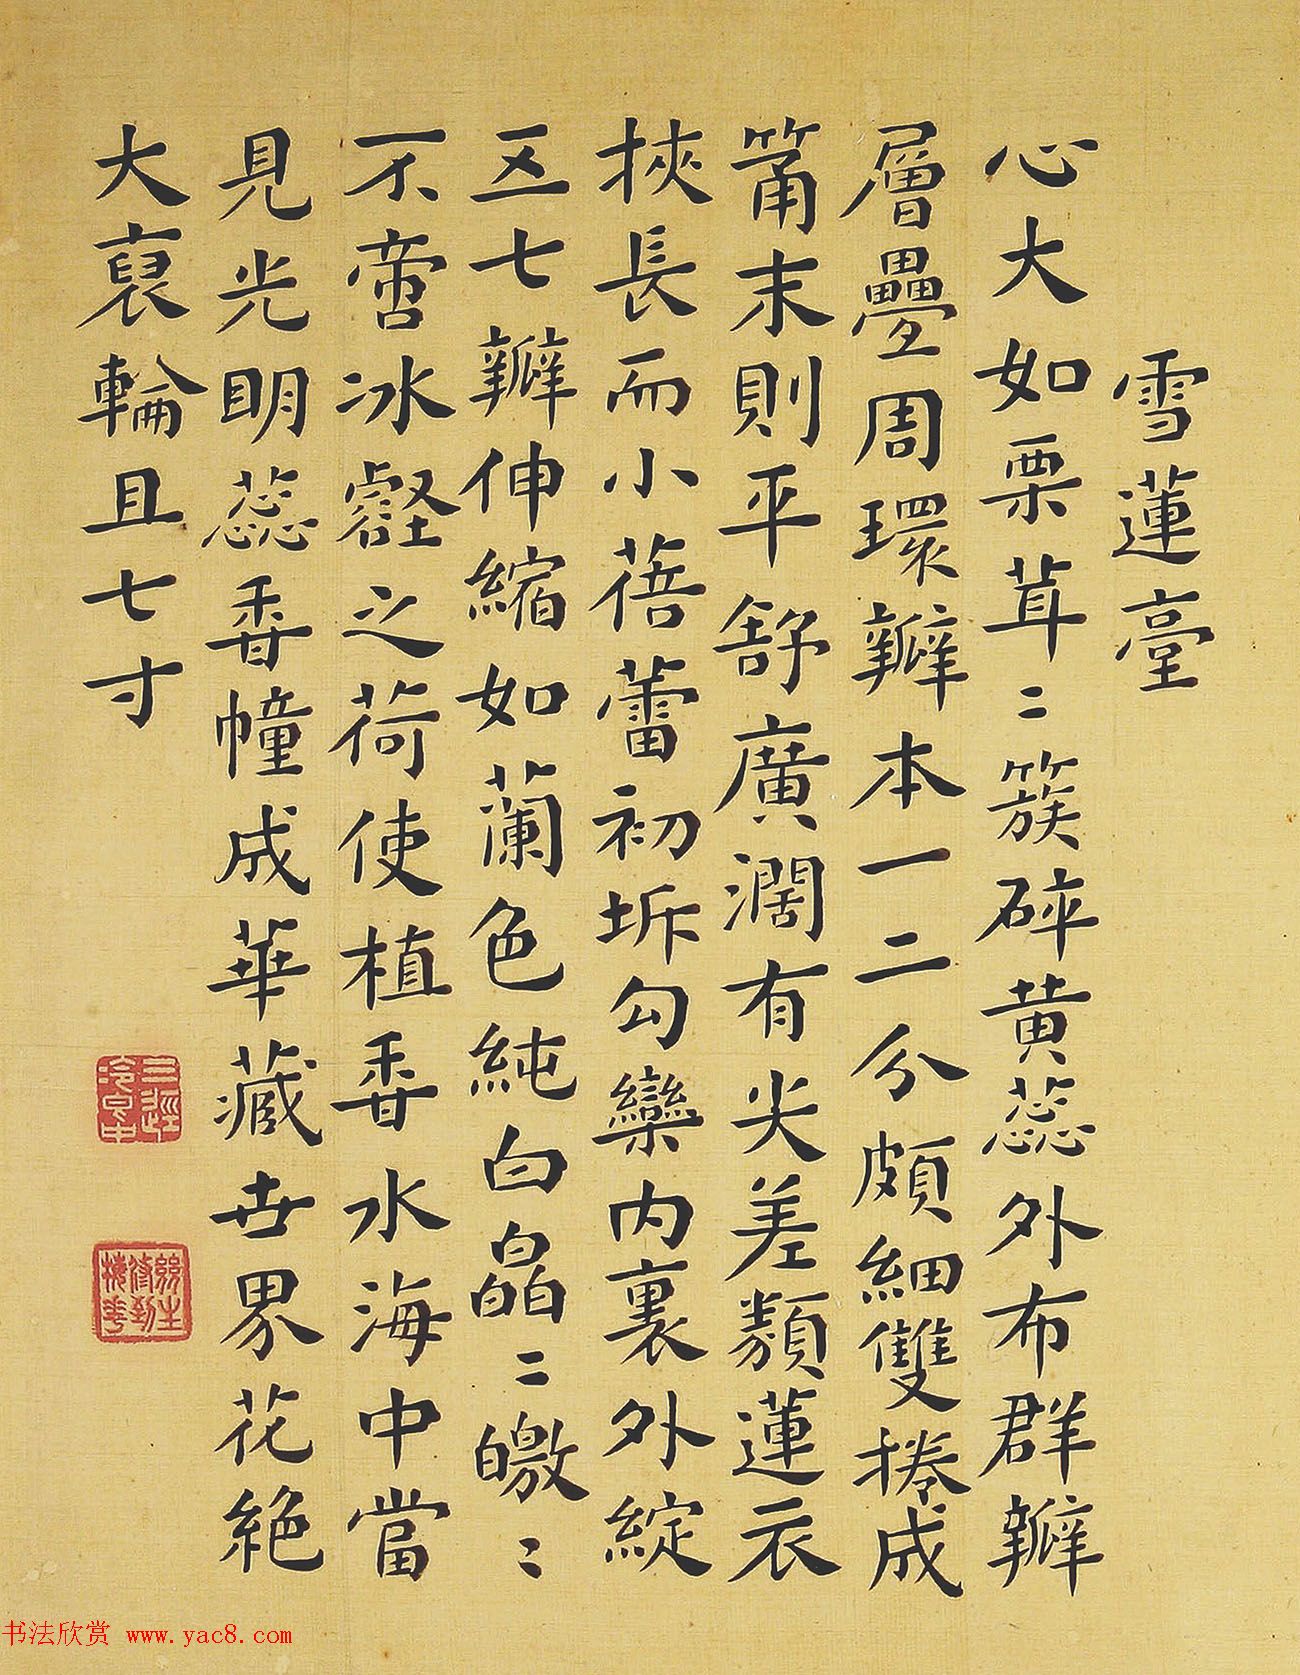 雪蓮臺
心大如栗茸二簇碎黄蕊外布群瓣
層疊周環瓣本一二分頗細雙捲成
筩末則平舒廣濶有尖差類蓮衣
挾長而小蓓蕾初坼勾欒内裏外綻
五七瓣伸縮如蘭色純白皛二皦二
不啻冰壑之荷使植香水海中當
見光明蕊香幢成華藏世界花絶
大裒輪且七寸
三逕冷只中
書法欣赏 www.yac8.com